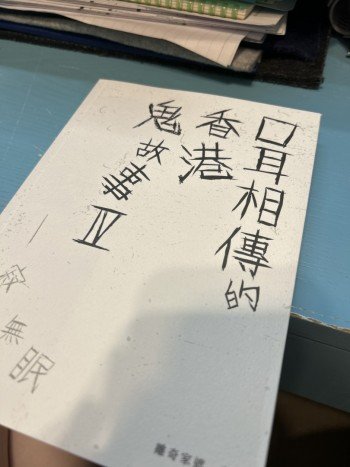 口耳相傳的
香港
鬼故事IV
一夜無眠
離奇家族